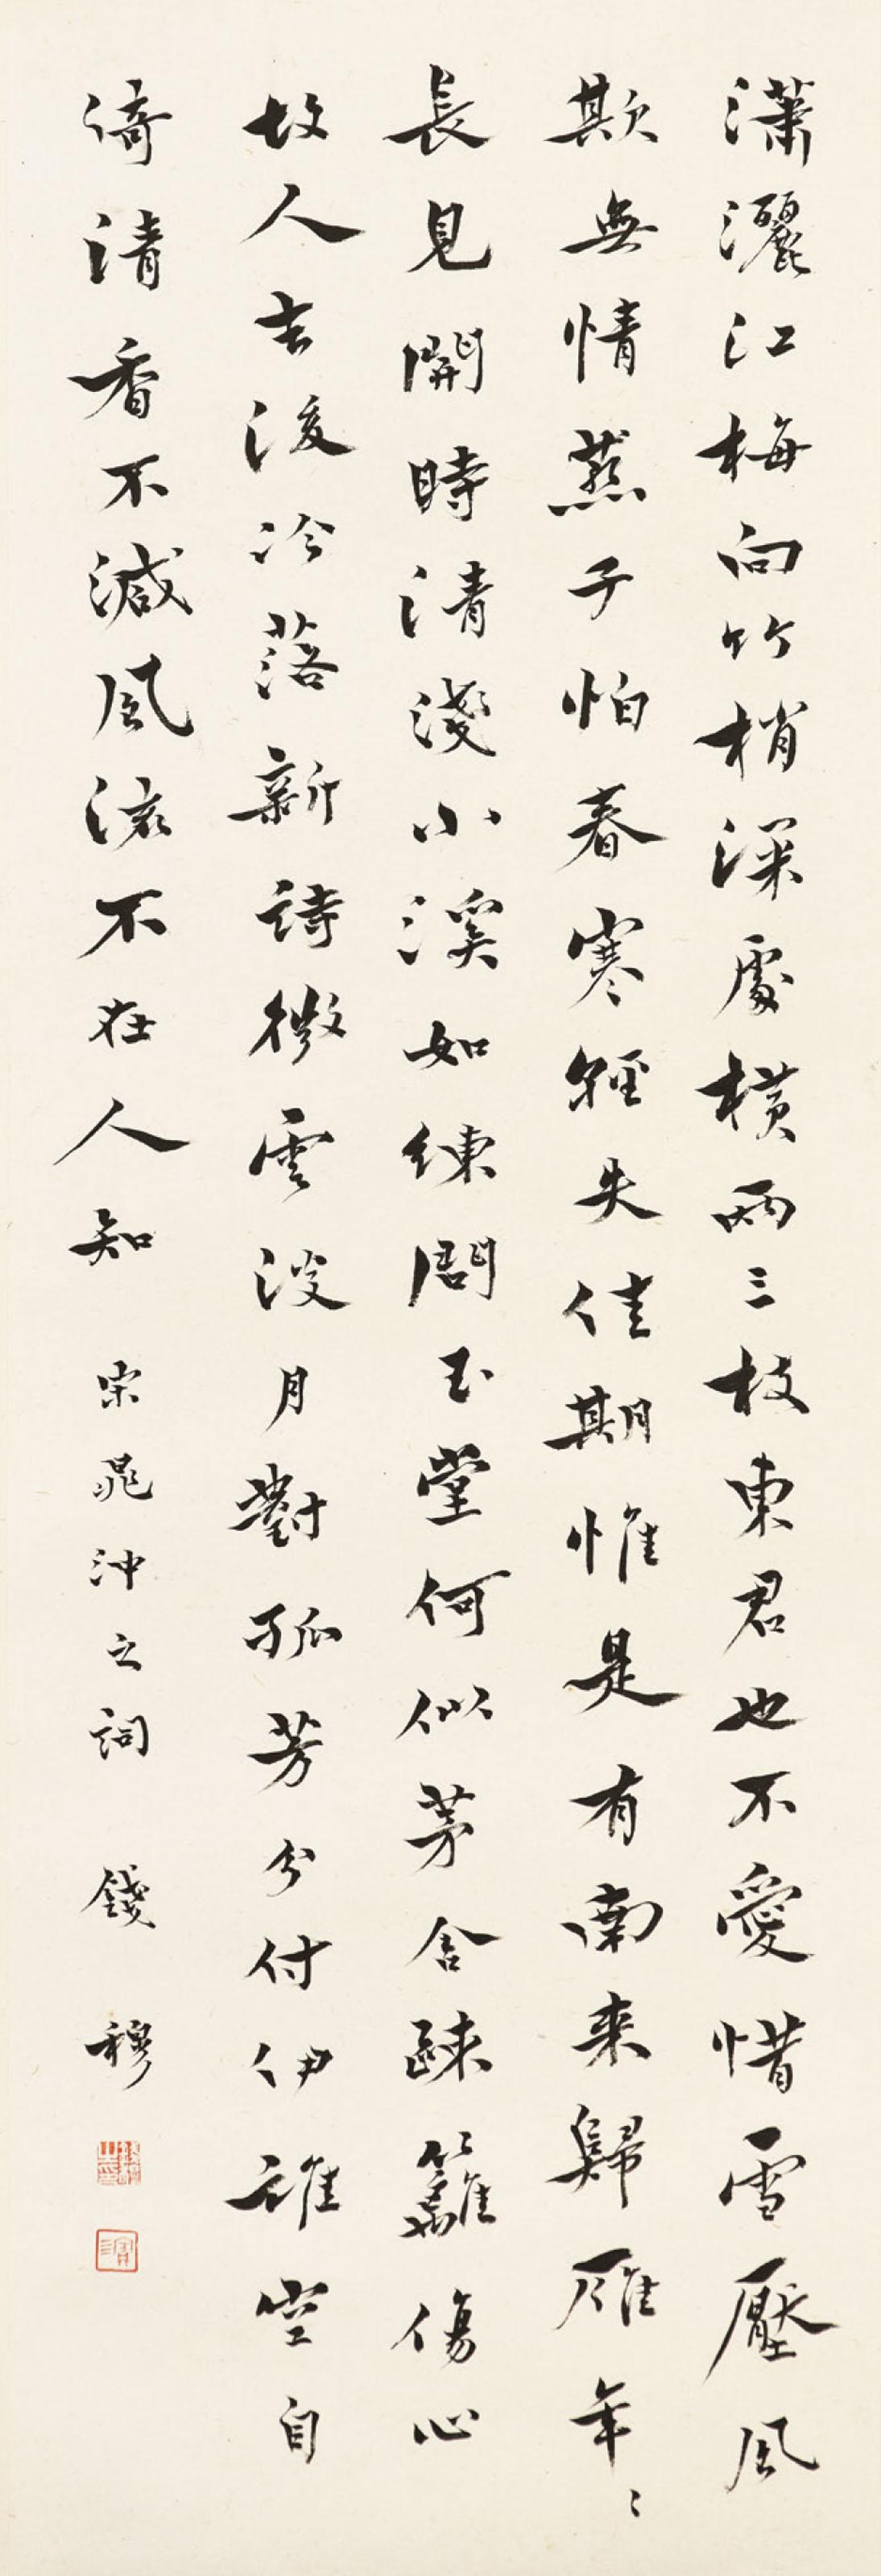 瀟灑江梅向竹梢深處橫兩三枝東君也不愛惜雪壓風
欺無情燕子怕春寒輕失佳期惟是有南来歸雁年〻
長見開時清淺小溪如練問玉堂何似茅舍疎籬傷心
故人去後冷落新詩微雲淡月對孤芳分付伊誰空自
倚清香不減風流不在人知 宋晁沖之詞 錢穆